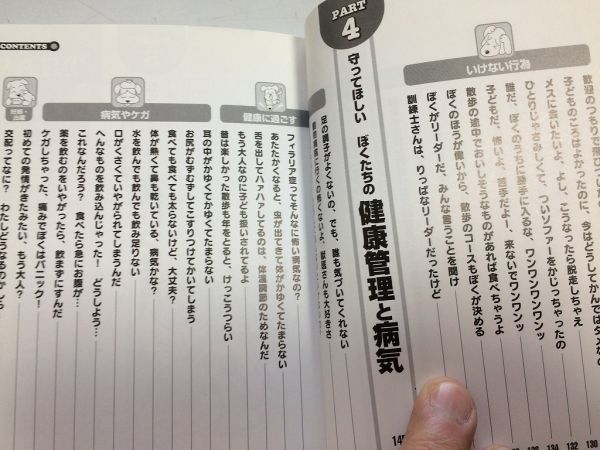 いけない行為
歓迎のつもりで飛びついた
子どものころはよかったのに、今はどうしてかんではダメな
メスに会いたいよ、よし、こうなったら脱走しちゃえ
ひとりじゃさみしくて、ついソファーをかじっちゃったの
誰だ、ぼくのうちに勝手に入るな、ワンワンワンッ
子どもだ、怖いよ、苦手だよー！ 来ないでワンワンッ
散歩の途中でおいしそうなものがあれば食べちゃうよ
ぼくのほうが偉いから、散歩のコースもぼくが決める
ぼくがリーダーだ、みんな言うことを聞け
訓練士さんは、りっぱなリーダーだったけど
130
132
134
136
138
PART
4
守ってほしい ぼくたちの
健康管理と病気
足の調子がよくないの、でも、誰も気づいてくれない
動物病院に行くの怖くないよ、獣医さんも大好きさ
CONTENTS
健康に過ごす
フィラリア症ってそんなに怖い病気なの？
あたたかくなると、虫が出てきて体がかゆくてたまらない
舌を出してハァハァしてるのは、体温調節のためなんだ
もう大人なのに子ども扱いされてるよ
昔は楽しかった散歩も年をとると、けっこうつらい
病気やケガ
耳の中がかゆくてかゆくてたまらない
お尻がむずむずしてこすりつけてかいてしまう
食べても食べても太らないけど、大丈夫？
体が熱くて鼻も乾いている、病気かな？
水を飲んでも飲んでも飲み足りない
口がくさくていやがられてしまうんだ
へんなものを飲み込んじゃった！ どうしよう…
これなんだろう？ 食べたら急にお腹が…
薬を飲むのをいやがったら、飲まずにすんだ
ケガしちゃった、痛みでぼくはパニック！
初めての発情がきたみたい、もう大人？
交配ってなに？ わたしどうなるの